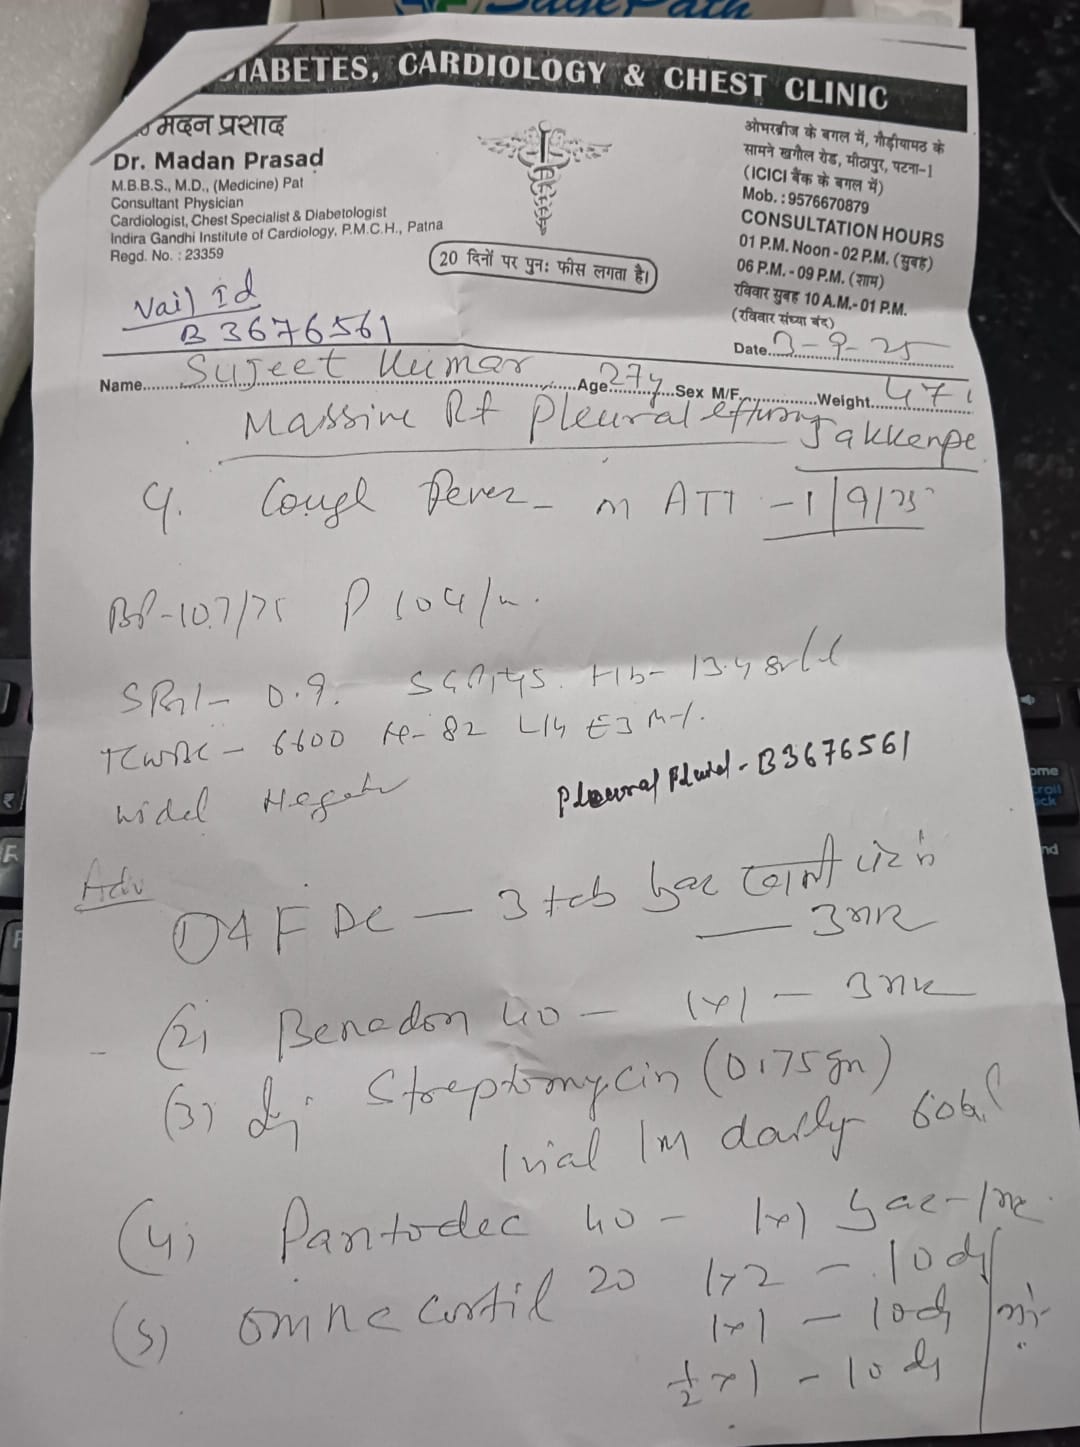 SagePath
DIABETES, CARDIOLOGY & CHEST CLINIC
मदन प्रसाद
Dr. Madan Prasad
M.B.B.S., M.D., (Medicine) Pat
Consultant Physician
Cardiologist, Chest Specialist & Diabetologist
Indira Gandhi Institute of Cardiology, P.M.C.H., Patna
Regd. No. : 23359
ओभरब्रीज के बगल में, गौड़ीयामठ के
सामने खगौल रोड, मीठापुर, पटना-1
(ICICI बैंक के बगल में)
Mob. : 9576670879
CONSULTATION HOURS
01 P.M. Noon - 02 P.M. (सुबह)
06 P.M. - 09 P.M. (शाम)
रविवार सुबह 10 A.M.- 01 P.M.
(रविवार संध्या बंद)
20 दिनों पर पुनः फीस लगता है।
Vail Id
B3676561
Date 3-9-25
Name Sujeet Kumar Age 27y Sex M/F Weight 47
Massive Rt Pleural effusion
Jakkenpe
Cough Fever - on ATT - 1/9/25
BP-107/75 P 104/m.
SBil- 0.9. SGPT 45. Hb- 13.4
TCWBC - 6600 N- 82 L14 E3 M1.
Widal Negative
Pleural Fluid - B3676561
Adv
(1) 4 FDC - 3 tab सुबह खाली पेट में
(2) Benadon 40 - 1x1 -
(3) Inj Streptomycin (0.75 gm)
1 vial IM daily
(4) Pantodec 40 - 1x1 सुबह
(5) Omnacortil 20 1x2 - 10 d
1x1 - 10 d
1/2 x 1 - 10 d